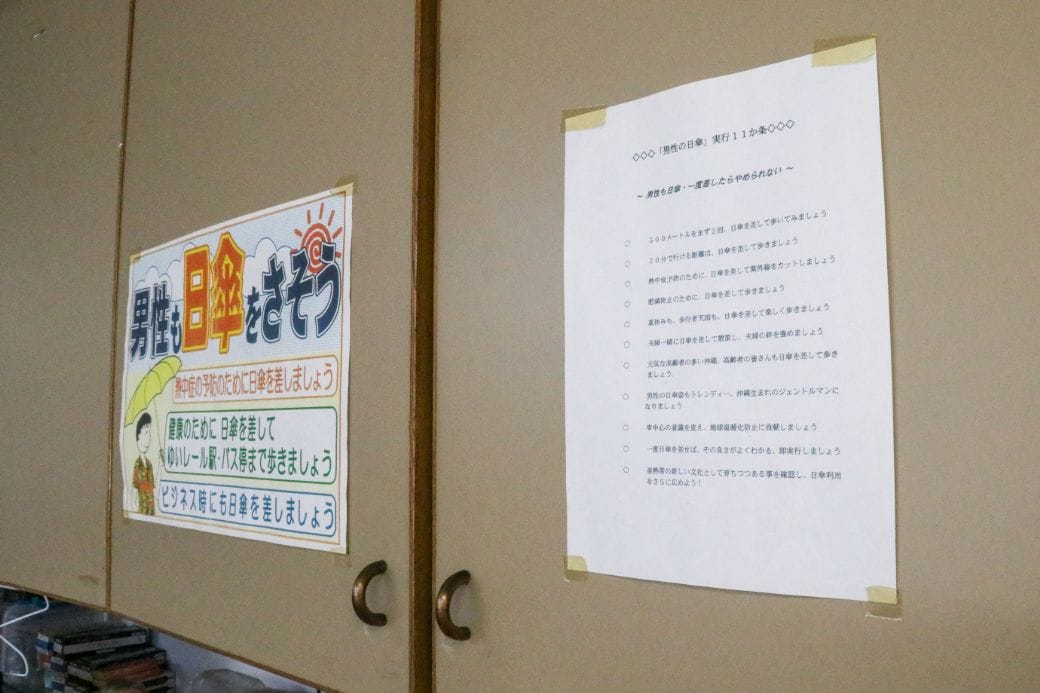 男性も日傘をさそう
熱中症の予防のために日傘を差しましょう
健康のために 日傘を差して
ゆいレール駅・バス停まで歩きましょう
ビジネス時にも日傘を差しましょう
◇◇◇「男性の日傘」実行11か条◇◇◇
～ 男性も日傘・一度差したらやめられない ～
○ 500メートルをまず2回、日傘を差して歩いてみましょう
○ 20分で行ける距離は、日傘を差して歩きましょう
○ 熱中症予防のために、日傘を差して紫外線をカットしましょう
○ 肥満防止のために、日傘を差して歩きましょう
○ 夏休みも、歩行者天国も、日傘を差して楽しく歩きましょう
○ 夫婦一緒に日傘を差して散策し、夫婦の絆を強めましょう
○ 元気な高齢者の多い沖縄、高齢者の皆さんも日傘を差して歩き
ましょう
○ 男性の日傘姿もトレンディー、沖縄生まれのジェントルマンに
なりましょう
○ 車中心の意識を変え、地球温暖化防止に貢献しましょう
○ 一度日傘を差せば、その良さがよくわかる、即実行しましょう
○ 亜熱帯の新しい文化として育ちつつある事を確認し、日傘利用
をさらに広めよう！